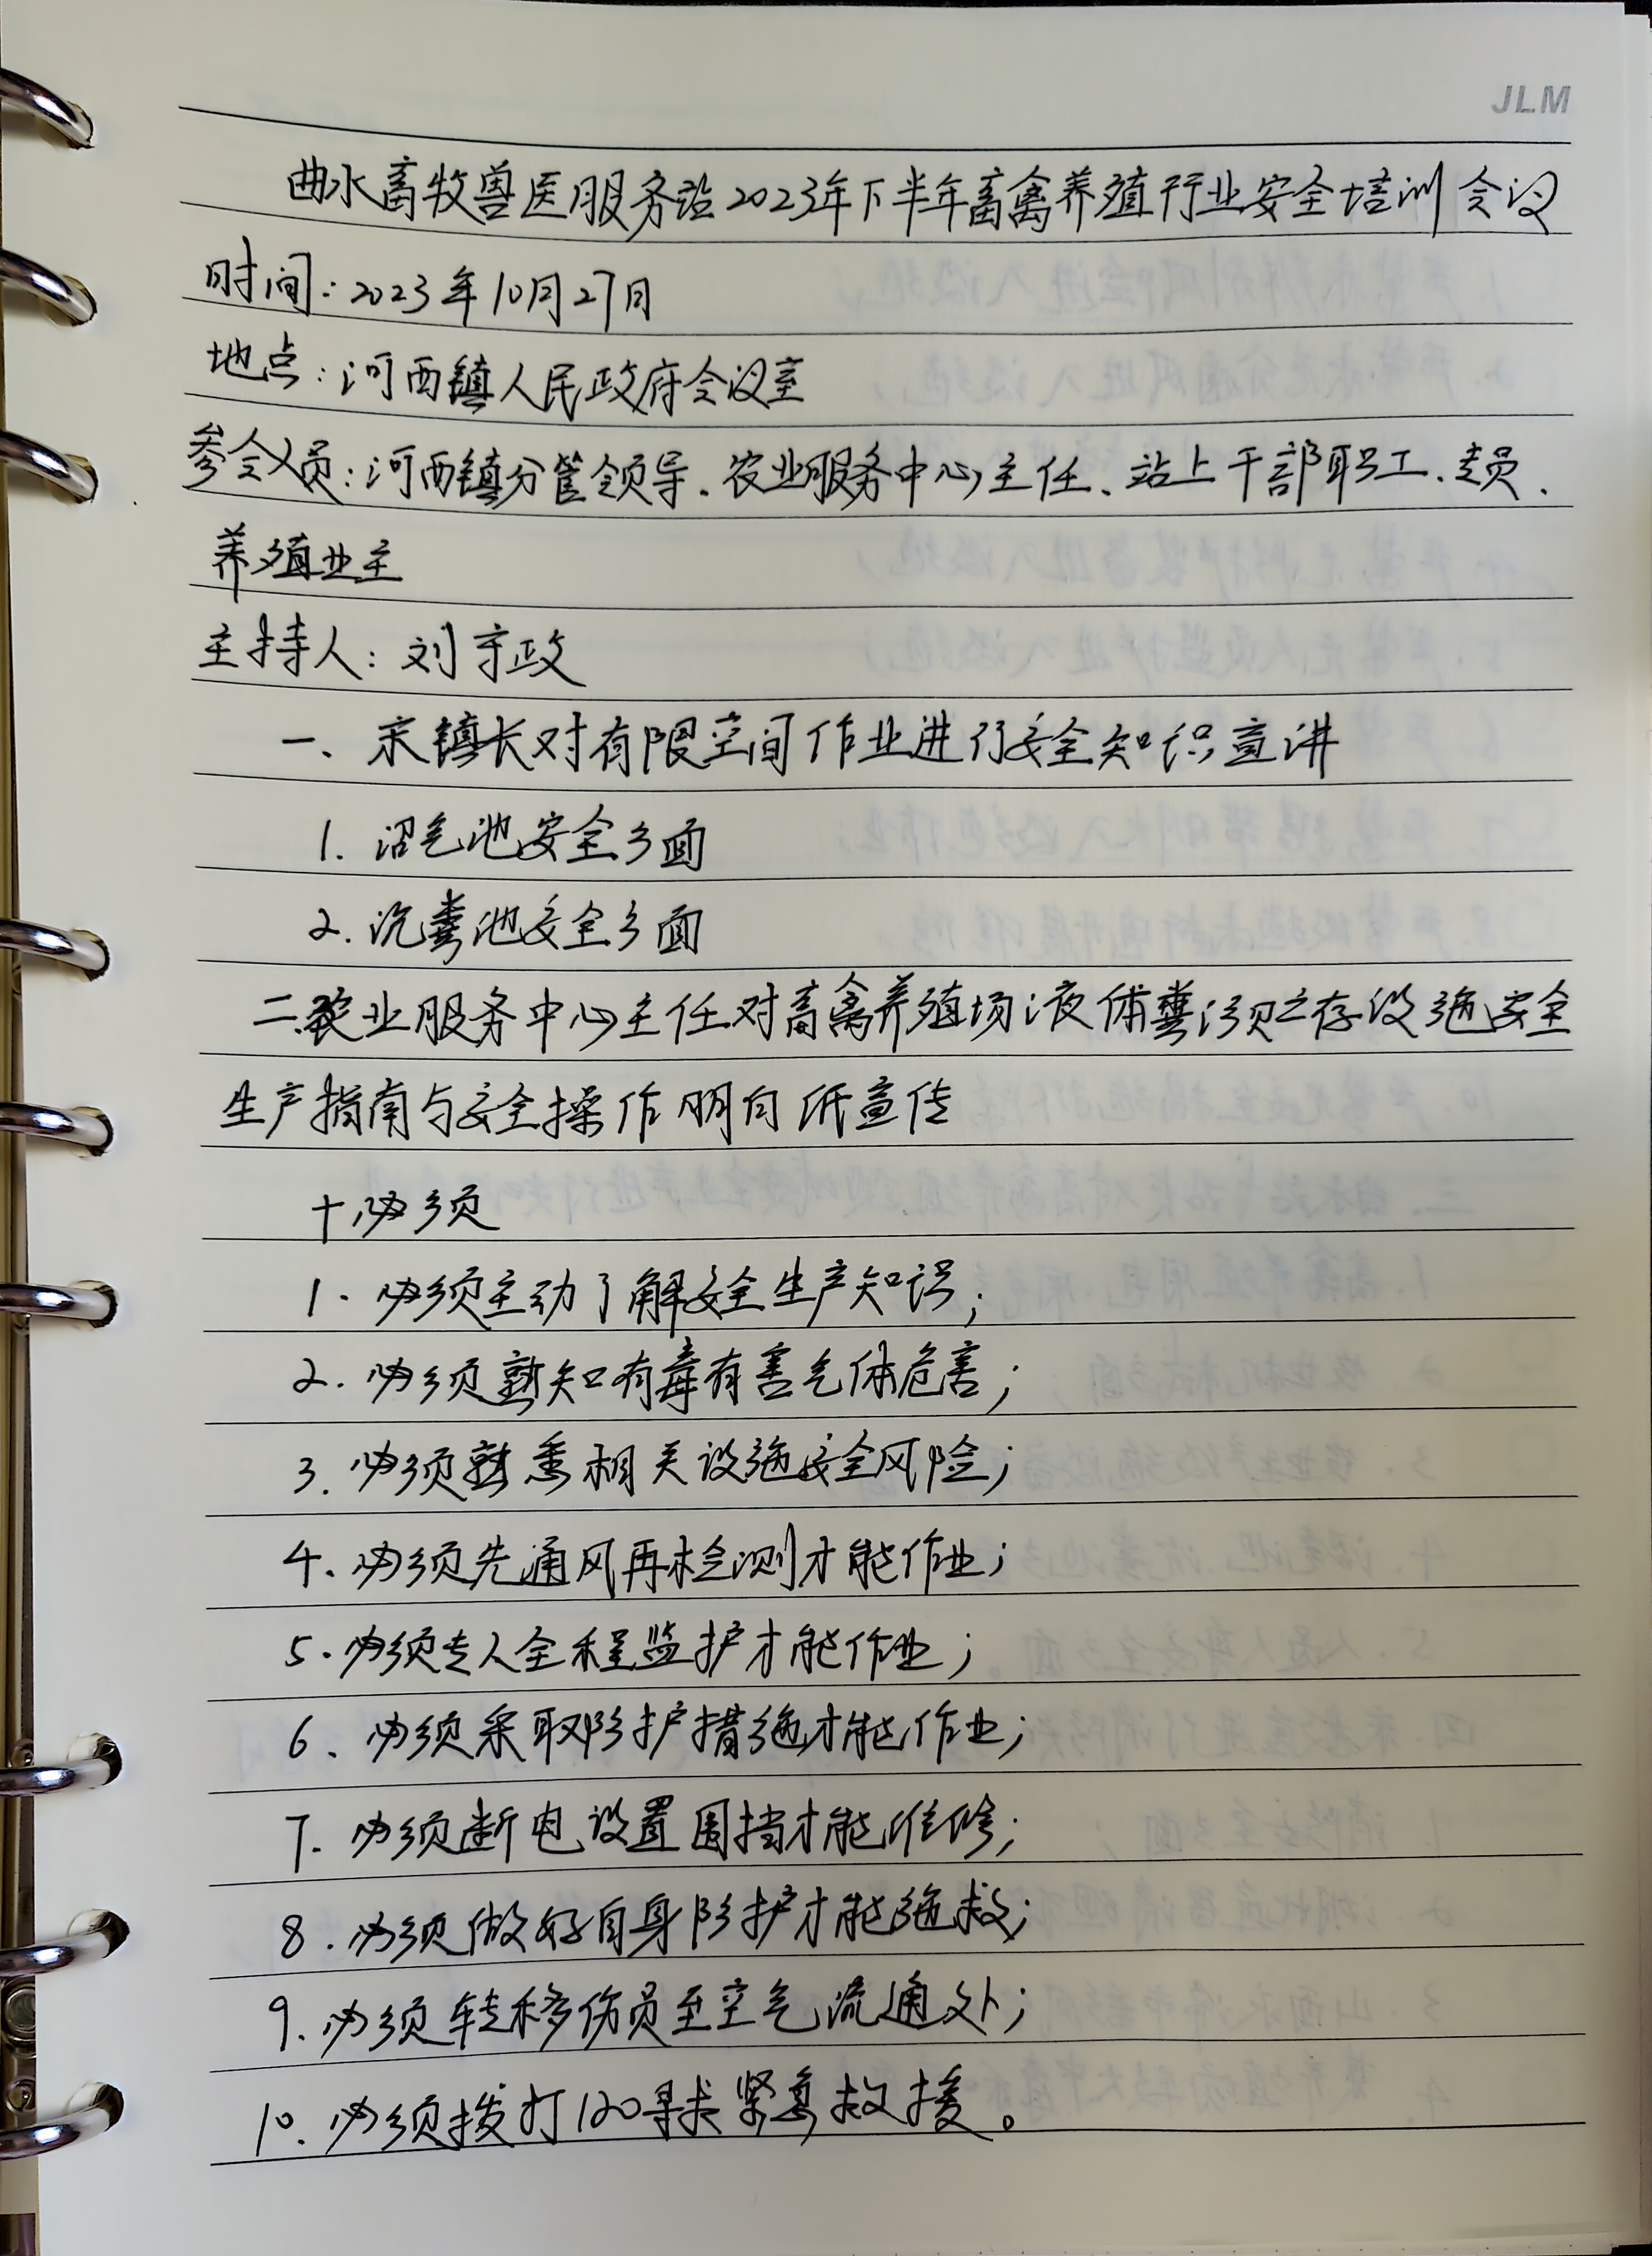 JLM
曲水畜牧兽医服务站2023年下半年畜禽养殖行业安全培训会议
时间：2023年10月27日
地点：河西镇人民政府会议室
参会人员：河西镇分管领导、农业服务中心主任、站上干部职工、专员、
养殖业主
主持人：刘守政
一、宋镇长对有限空间作业进行安全知识宣讲
1. 沼气池安全方面
2. 沉粪池安全方面
二、农业服务中心主任对畜禽养殖场液体粪污贮存设施安全
生产指南与安全操作明白纸宣传
十必须
1. 必须主动了解安全生产知识；
2. 必须熟知有毒有害气体危害；
3. 必须熟悉相关设施安全风险；
4、必须先通风再检测才能作业；
5. 必须专人全程监护才能作业；
6、必须采取防护措施才能作业；
7. 必须断电设置围挡才能维修；
8. 必须做好自身防护才能施救；
9. 必须转移伤员至空气流通处；
10. 必须拨打120寻求紧急救援。